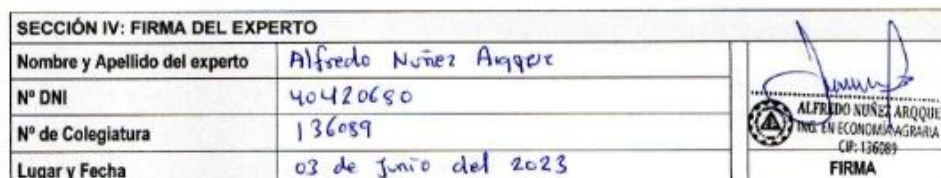 SECCIÓN IV: FIRMA DEL EXPERTO
Nombre y Apellido del experto Alfredo Nuñez Arqque
Nº DNI 40420680
Nº de Colegiatura 136089
Lugar y Fecha 03 de Junio del 2023
ALFREDO NUÑEZ ARQQUE
ING. EN ECONOMÍA AGRARIA
CIP: 136089
FIRMA